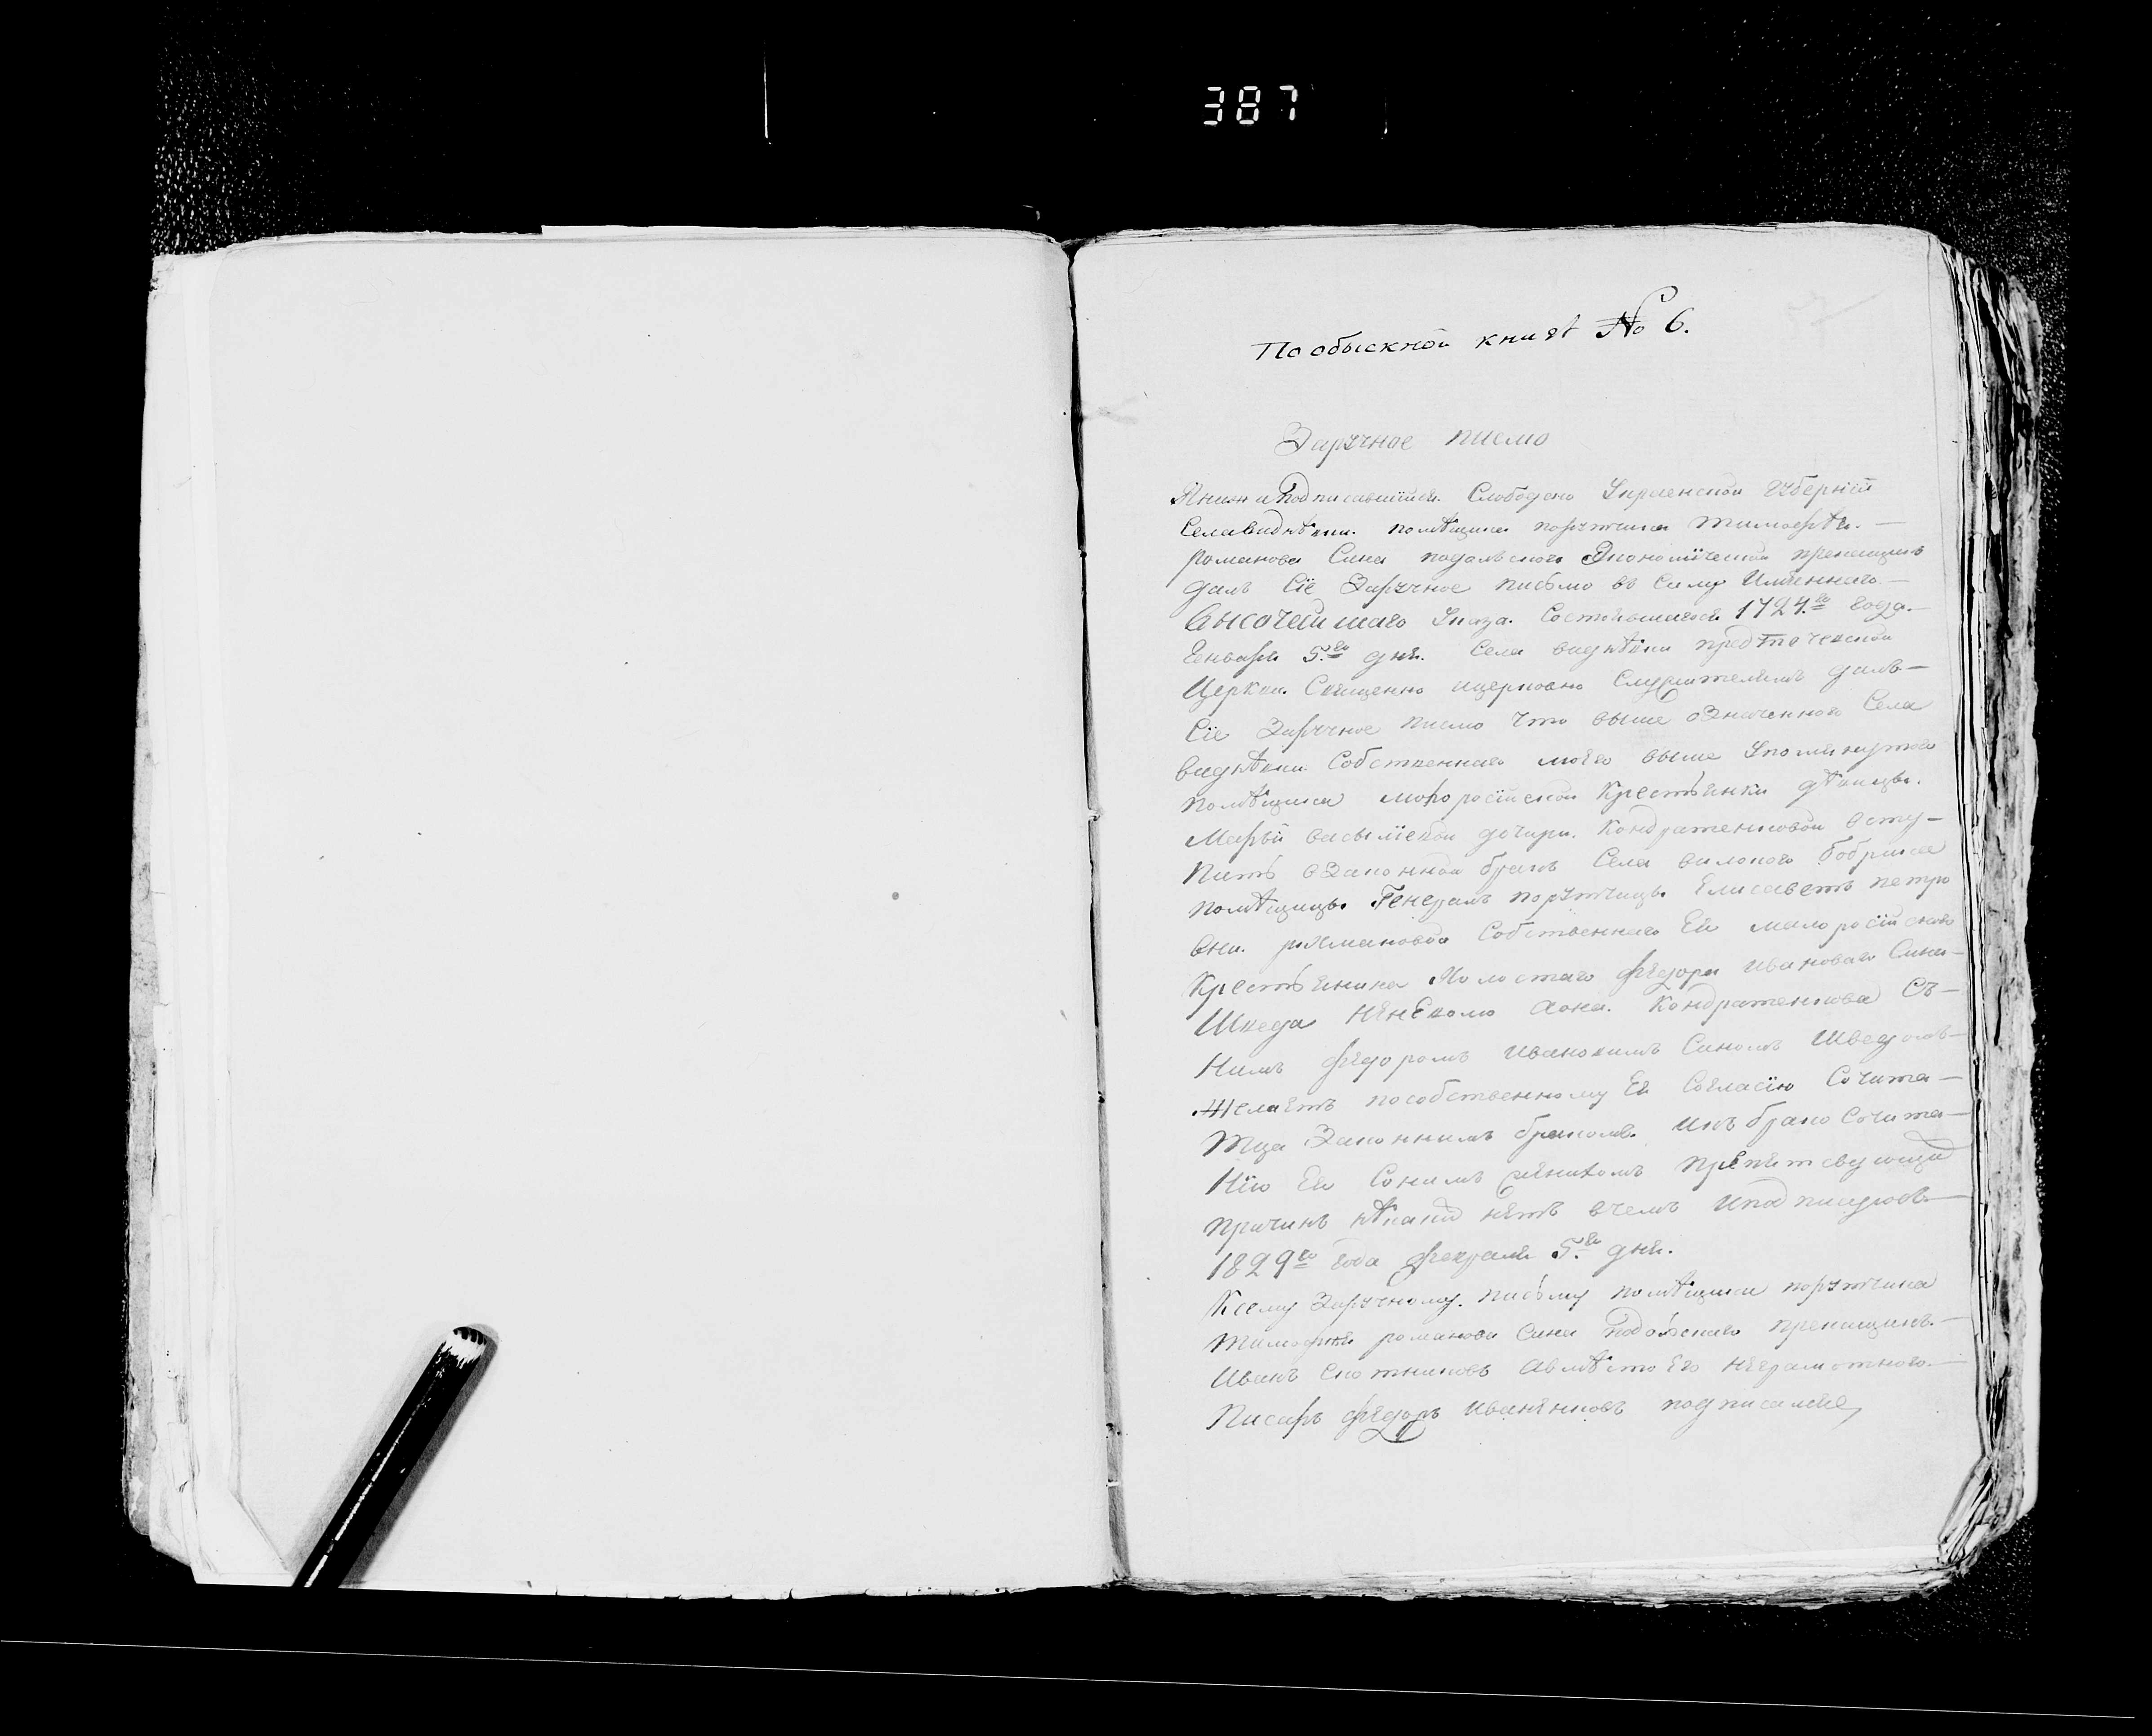 387
По обыскной книгѣ № 6.
Заручное писмо
Яниже Подписавшійся Слободско Украенской Губерніи
Села видѣнки помѣщика порутчика тимофѣя
романова Сина подолского Економической прикащикъ
далъ Сіе Заручное письмо въ Силу Имѣннаго
Высочайшаго Указа Состоявшагося 1724.го года
Генваря 5.го дня Села видѣнки предточеской
Церкви Священно ицерковно Служителямъ далъ
Сіе Заручное писмо что выше означенного Села
видѣнки Собственнаго моего выше Упомянутаго
помѣщика Крестьянки дѣвицы
Марьи дочери Кондратенковой всту-
пить взаконной бракъ Села Бобрика
помѣщицы Генералъ порутчицы Елисаветъ петро
вни рахмановой Собственнаго Ея малоросійскаго
Крестьянина Холостаго фѣдора ивановаго Сина
Шведа Кондратенкова Съ
Нимъ фѣдоромъ ивановимъ Синомъ Шведомъ
Желаетъ пособственному Ея Согласію Сочита-
тца Законнимъ бракомъ икъ брако Сочита-
нію Ея Сонимъ женихомъ препятсвующи
причинъ нѣкаких нѣтъ вчемъ иподписуюсь
1829го года февраля 5.го дня.
Ксему Заручному писъму помѣщика порутчика
тимофѣя романова Сина Подолскаго прикащикъ
Иванъ Скотниковъ авмѣсто Его неграмотного
Писаръ фѣдоръ подписался